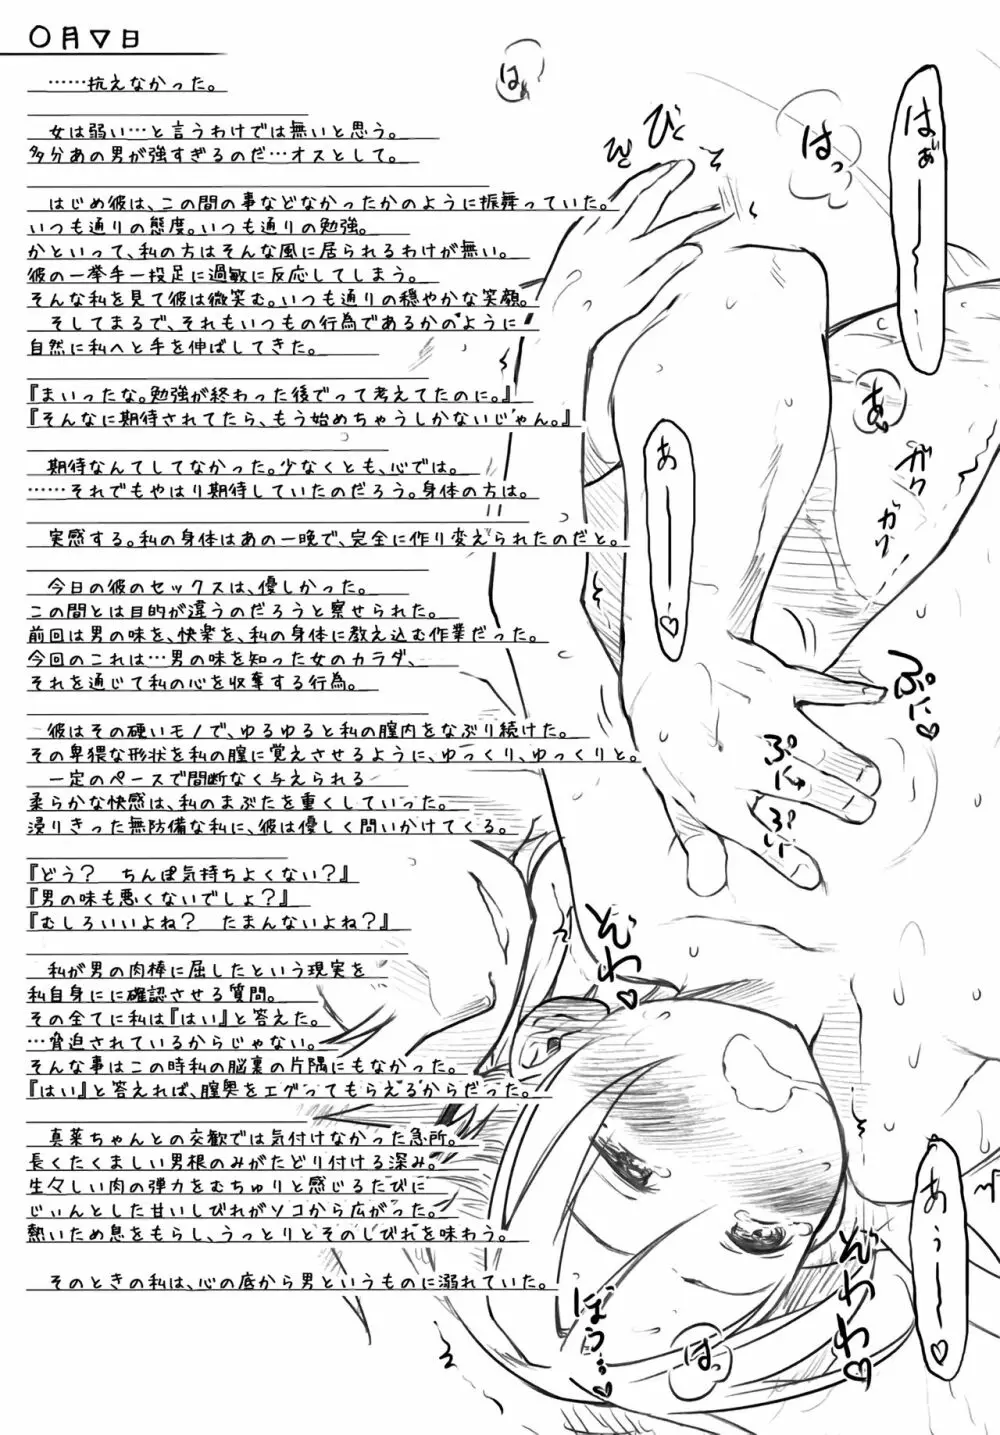 〇月▽日
……抗えなかった。
女は弱い…と言うわけでは無いと思う。
多分あの男が強すぎるのだ…オスとして。
はじめ彼は、この間の事などなかったかのように振舞っていた。
いつも通りの態度。いつも通りの勉強。
かといって、私の方はそんな風に居られるわけが無い。
彼の一挙手一投足に過敏に反応してしまう。
そんな私を見て彼は微笑む。いつも通りの穏やかな笑顔。
そしてまるで、それもいつもの行為であるかのように
自然に私へと手を伸ばしてきた。
『まいったな。勉強が終わった後でって考えてたのに。』
『そんなに期待されてたら、もう始めちゃうしかないじゃん。』
期待なんてしてなかった。少なくとも、心では。
……それでもやはり期待していたのだろう。身体の方は。
実感する。私の身体はあの一晩で、完全に作り変えられたのだと。
今日の彼のセックスは、優しかった。
この間とは目的が違うのだろうと察せられた。
前回は男の味を、快楽を、私の身体に教え込む作業だった。
今回のこれは…男の味を知った女のカラダ、
それを通じて私の心を収奪する行為。
彼はその硬いモノで、ゆるゆると私の膣内をなぶり続けた。
その卑猥な形状を私の膣に覚えさせるように、ゆっくり、ゆっくりと。
一定のペースで間断なく与えられる
柔らかな快感は、私のまぶたを重くしていった。
浸りきった無防備な私に、彼は優しく問いかけてくる。
『どう？　ちんぽ気持ちよくない？』
『男の味も悪くないでしょ？』
『むしろいいよね？　たまんないよね？』
私が男の肉棒に屈したという現実を
私自身にに確認させる質問。
その全てに私は『はい』と答えた。
…脅迫されているからじゃない。
そんな事はこの時私の脳裏の片隅にもなかった。
『はい』と答えれば、膣奥をエグってもらえるからだった。
真菜ちゃんとの交歓では気付けなかった急所。
長くたくましい男根のみがたどり付ける深み。
生々しい肉の弾力をむちゅりと感じるたびに
じぃんとした甘いしびれがソコから広がった。
熱いため息をもらし、うっとりとそのしびれを味わう。
そのときの私は、心の底から男というものに溺れていた。
はぁ
びくん
はっ
はぁぁーーー
あっ
ガク
ガク
あーーー♡
ぷに♡
ぷにゅ
ぷに
ぞわ♡
ぞわわ♡
あぅーー♡
はっ
ぽぅ…♡